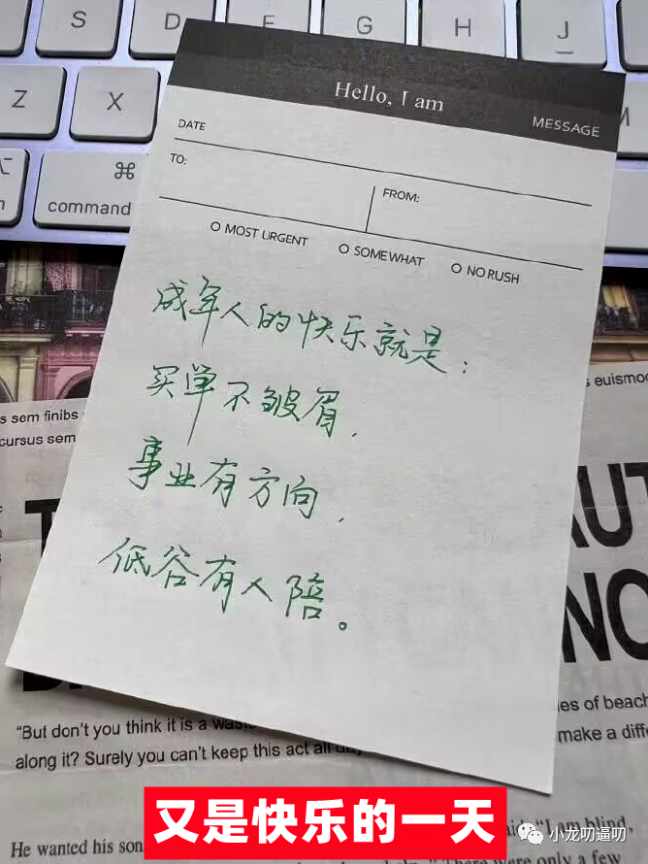 S D F G H J
Z X M
command
Hello, I am
MESSAGE
DATE
TO:
FROM:
MOST URGENT
SOMEWHAT
NO RUSH
成年人的快乐就是：
买单不皱眉，
事业有方向，
低谷有人陪。
s euismo
s sem finibs
cursus sem
AUT
NO
"But don't you think it is a
along it? Surely you can't keep this act all
es of beach
make a diffe
He wanted his son
"I am blind,
There were only a few
又是快乐的一天
小龙叨逼叨